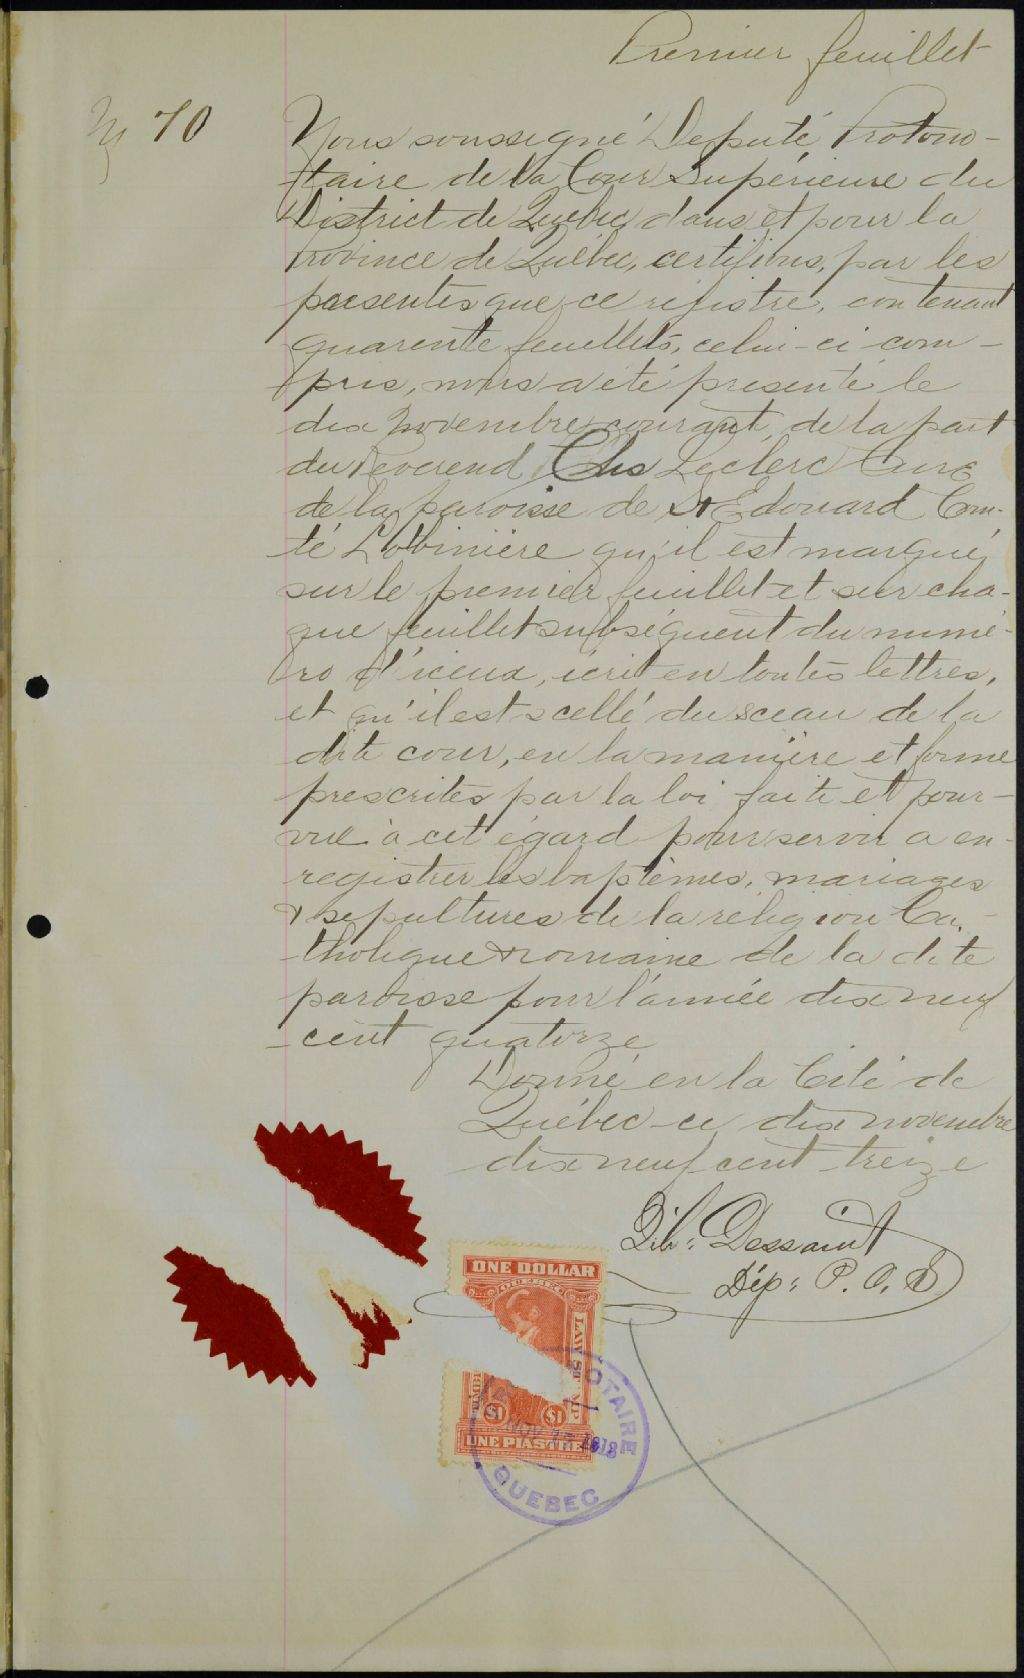 Premier feuillet
No 70
Nous soussigné Deputé Protono-
taire de la Cour Supérieure du
District de Québec, dans et pour la
Province de Québec, certifions, par les
presentes que ce registre, contenant
quarente feuillets, celui-ci com-
pris, nous a été presenté le
dix Novembre courant de la part
du Reverend Chs Leclerc Curé
de la paroisse de St Edouard Com-
té Lotbinière qu'il est marqué
sur le premier feuillet et sur cha-
que feuillet subséquent du numé-
ro d'iceux, écrit en toutes lettres,
et qu'il est scellé du sceau de la
dite cour, en la manière et forme
prescrites par la loi faite et pour-
vue à cet égard pour servir a en-
registrer les baptêmes, mariages
& sepultures de la religion Ca-
tholique & romaine de la dite
paroisse pour l'année dix neuf
cent quatorze
Donné en la Cité de
Québec ce dix novembre
dix neuf cent treize
Gib: Dessaint
Dép: P. C. S
ONE DOLLAR
QUEBEC
LAW ST MP
TIMB
$1 $1
UNE PIASTRE
OTAIRE
NOV
QUEBEC